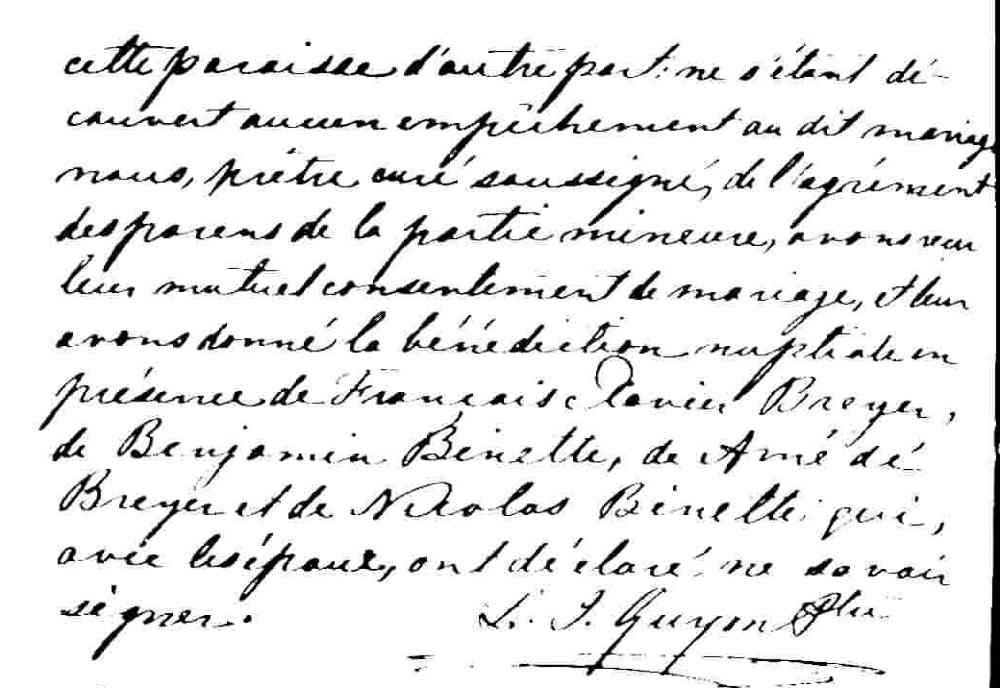 cette paroisse d'autre part: ne s'étant dé-
couvert aucun empêchement au dit mariage
nous, prêtre curé soussigné, de l'agrément
des parens de la partie mineure, avons reçu
leur mutuel consentement de mariage, et leur
avons donné la bénédiction nuptiale en
présence de François Xavier Breyer,
de Benjamin Binette, de Amédé
Breyer et de Nicolas Binette qui,
avec les époux, ont déclaré ne savoir
signer. L. I. Guyon Ptre